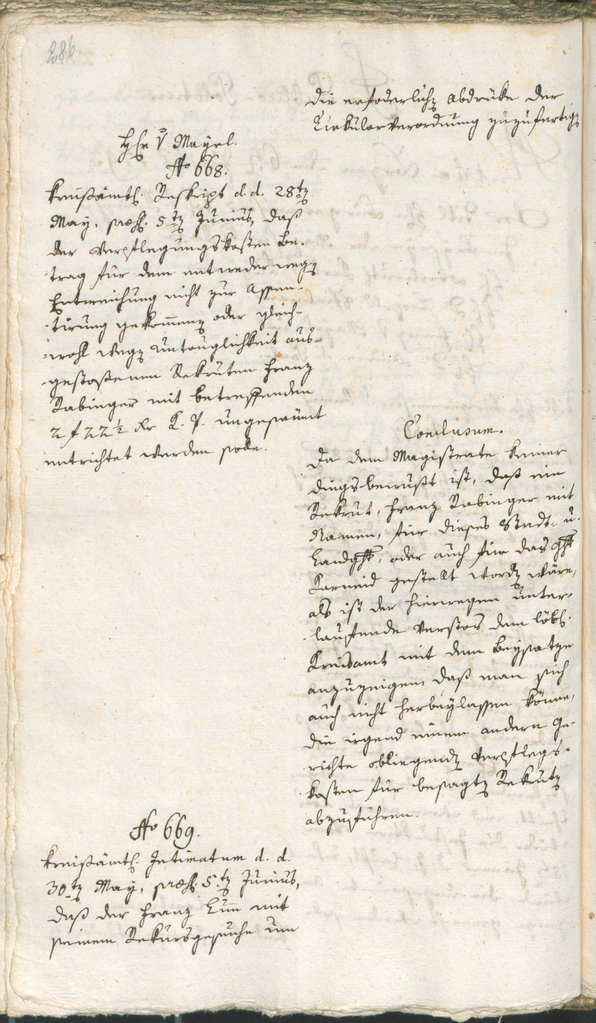 286
die erforderlichen Abdrücke der
Zirkularverordnung zuzufertigen
Hr. v. Mayrl.
No 668.
Kreißämtl. Reskript d. d. 28ten
May, praes. 5ten Junius, daß
der Verpflegungskosten Be-
trag für dem entweder wegen
Entweichung nicht zur Assen-
tirung gekommenen oder gleich-
wohl wegen Untauglichkeit aus-
gestossenen Rekruten Franz
Rabinger mit betreffenden
2 f 22 ½ kr K. P. ungesäumt
entrichtet werden solle.
Conclusum.
Da dem Magistrate keiner
dings bewußt ist, daß ein
Rekrut, Franz Rabinger mit
Namen, für dieses Stadt- u.
Landght, oder auch für das ght
Karneid gestellt worden wäre,
als ist der hierwegen unter-
lauffende Verstos dem löbl.
Kreisamt mit dem Beysatze
anzuzeigen daß man sich
auch nicht herbeylassen könne,
die irgend einem andern Ge-
richte obliegenden Verpflegs-
kosten für besagten Rekruten
abzuführen.
No 669.
Kreißämtl. Intimatum d. d.
30ten May, praes. 5ten Junius,
daß der Franz Lun mit
seinem Rekursgesuche um